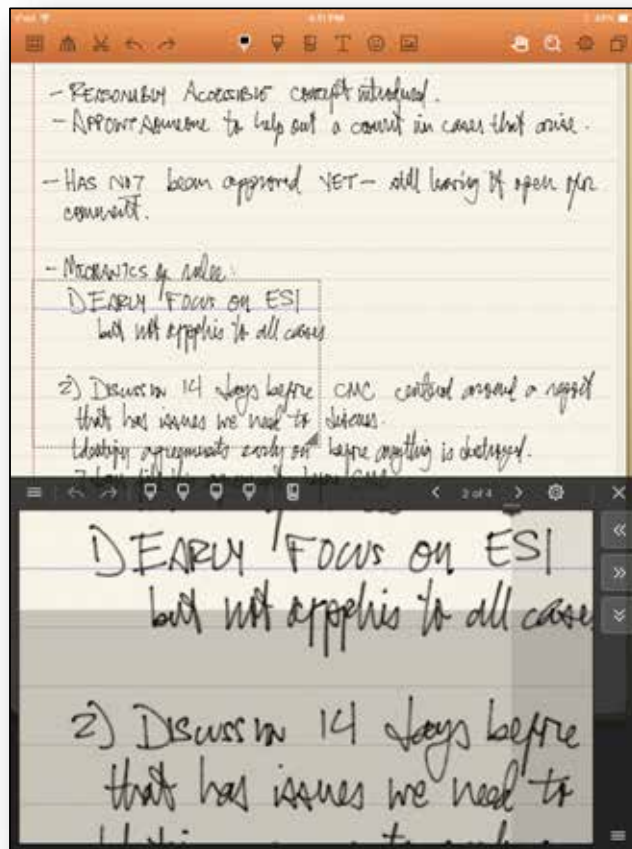 iPad 4:11 PM 49%
T
- REASONABLY ACCESSIBLE concept introduced.
- APPOINT someone to help out a court in cases that arise.
- HAS NOT been approved YET - still having it open for
comment.
- MECHANICS of rules:
1) EARLY FOCUS ON ESI
but not applies to all cases
2) DISCUSSION 14 days before CMC centered around a report
that has issues we need to discuss.
Identify agreements early on before anything is destroyed.
2 of 4
1) EARLY FOCUS ON ESI
but not applies to all cases
2) DISCUSSION 14 days before
that has issues we need to